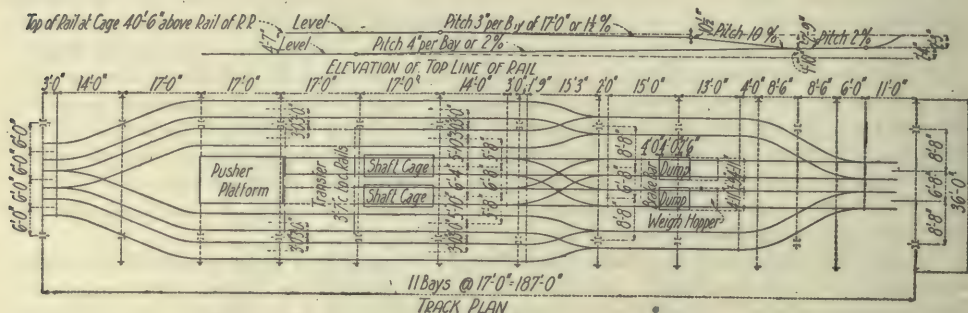 Top of Rail at Cage 40'-6" above Rail of R.R.
Level
Pitch 3" per Bay of 17'-0" or 1½ %
10½"
Pitch 10 %
Pitch 2 %
4'-7"
Level
Pitch 4" per Bay or 2 %
ELEVATION OF TOP LINE OF RAIL
3'-0" 14'-0" 17'-0" 17'-0" 17'-0" 17'-0" 14'-0" 3'-0" 1'-9" 15'-3" 2'-0" 15'-0" 13'-0" 4'-0" 8'-6" 8'-6" 6'-0" 11'-0"
6'-0" 6'-0" 6'-0" 6'-0"
Pusher
Platform
Transfer
3'-7" c. to c. Rails
Shaft Cage
Shaft Cage
5'-0" 6'-4" 5'-0"
5'-8" 6'-8" 5'-8"
8'-8" 6'-8" 8'-8"
Brake Bar
Dump
Dump
Weigh Hopper
8'-8" 6'-8" 8'-8"
36'-0"
11 Bays @ 17'-0"=187'-0"
TRACK PLAN